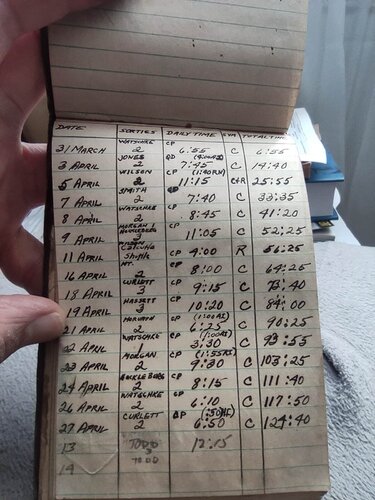 DATE SORTIES DAILY TIME TOTAL TIME
WATSCHKE CP
31 MARCH 2 6:55 C 6:55
JONES (4:00AI)
3 APRIL 2 7:45 C 14:40
WILSON CP (1:40RN)
5 APRIL 2 11:15 C+R 25:55
SMITH
7 APRIL 2 7:40 C 33:35
WATSCHKE CP
8 APRIL 2 8:45 C 41:20
MORGAN CP
9 APRIL 11:05 C 52:25
WILSON
11 APRIL Shuttle CP 4:00 R 56:25
16 APRIL 2 CP 8:00 C 64:25
CURLETT CP
18 APRIL 3 9:15 C 73:40
HASSETT CP
19 APRIL 3 10:20 C 84:00
HORVATH CP (1:00AI)
21 APRIL 2 6:25 C 90:25
WATSCHKE CP (1:00AI)
22 APRIL 2 3:30 C 93:55
MORGAN CP (1:55AI)
23 APRIL 2 9:30 C 103:25
CP
24 APRIL 2 8:15 C 111:40
WATSCHKE CP
26 APRIL 2 6:10 C 117:50
CURLETT (:50AI)
27 APRIL 2 6:50 C 124:40
13 TODD 12:15
14 TODD